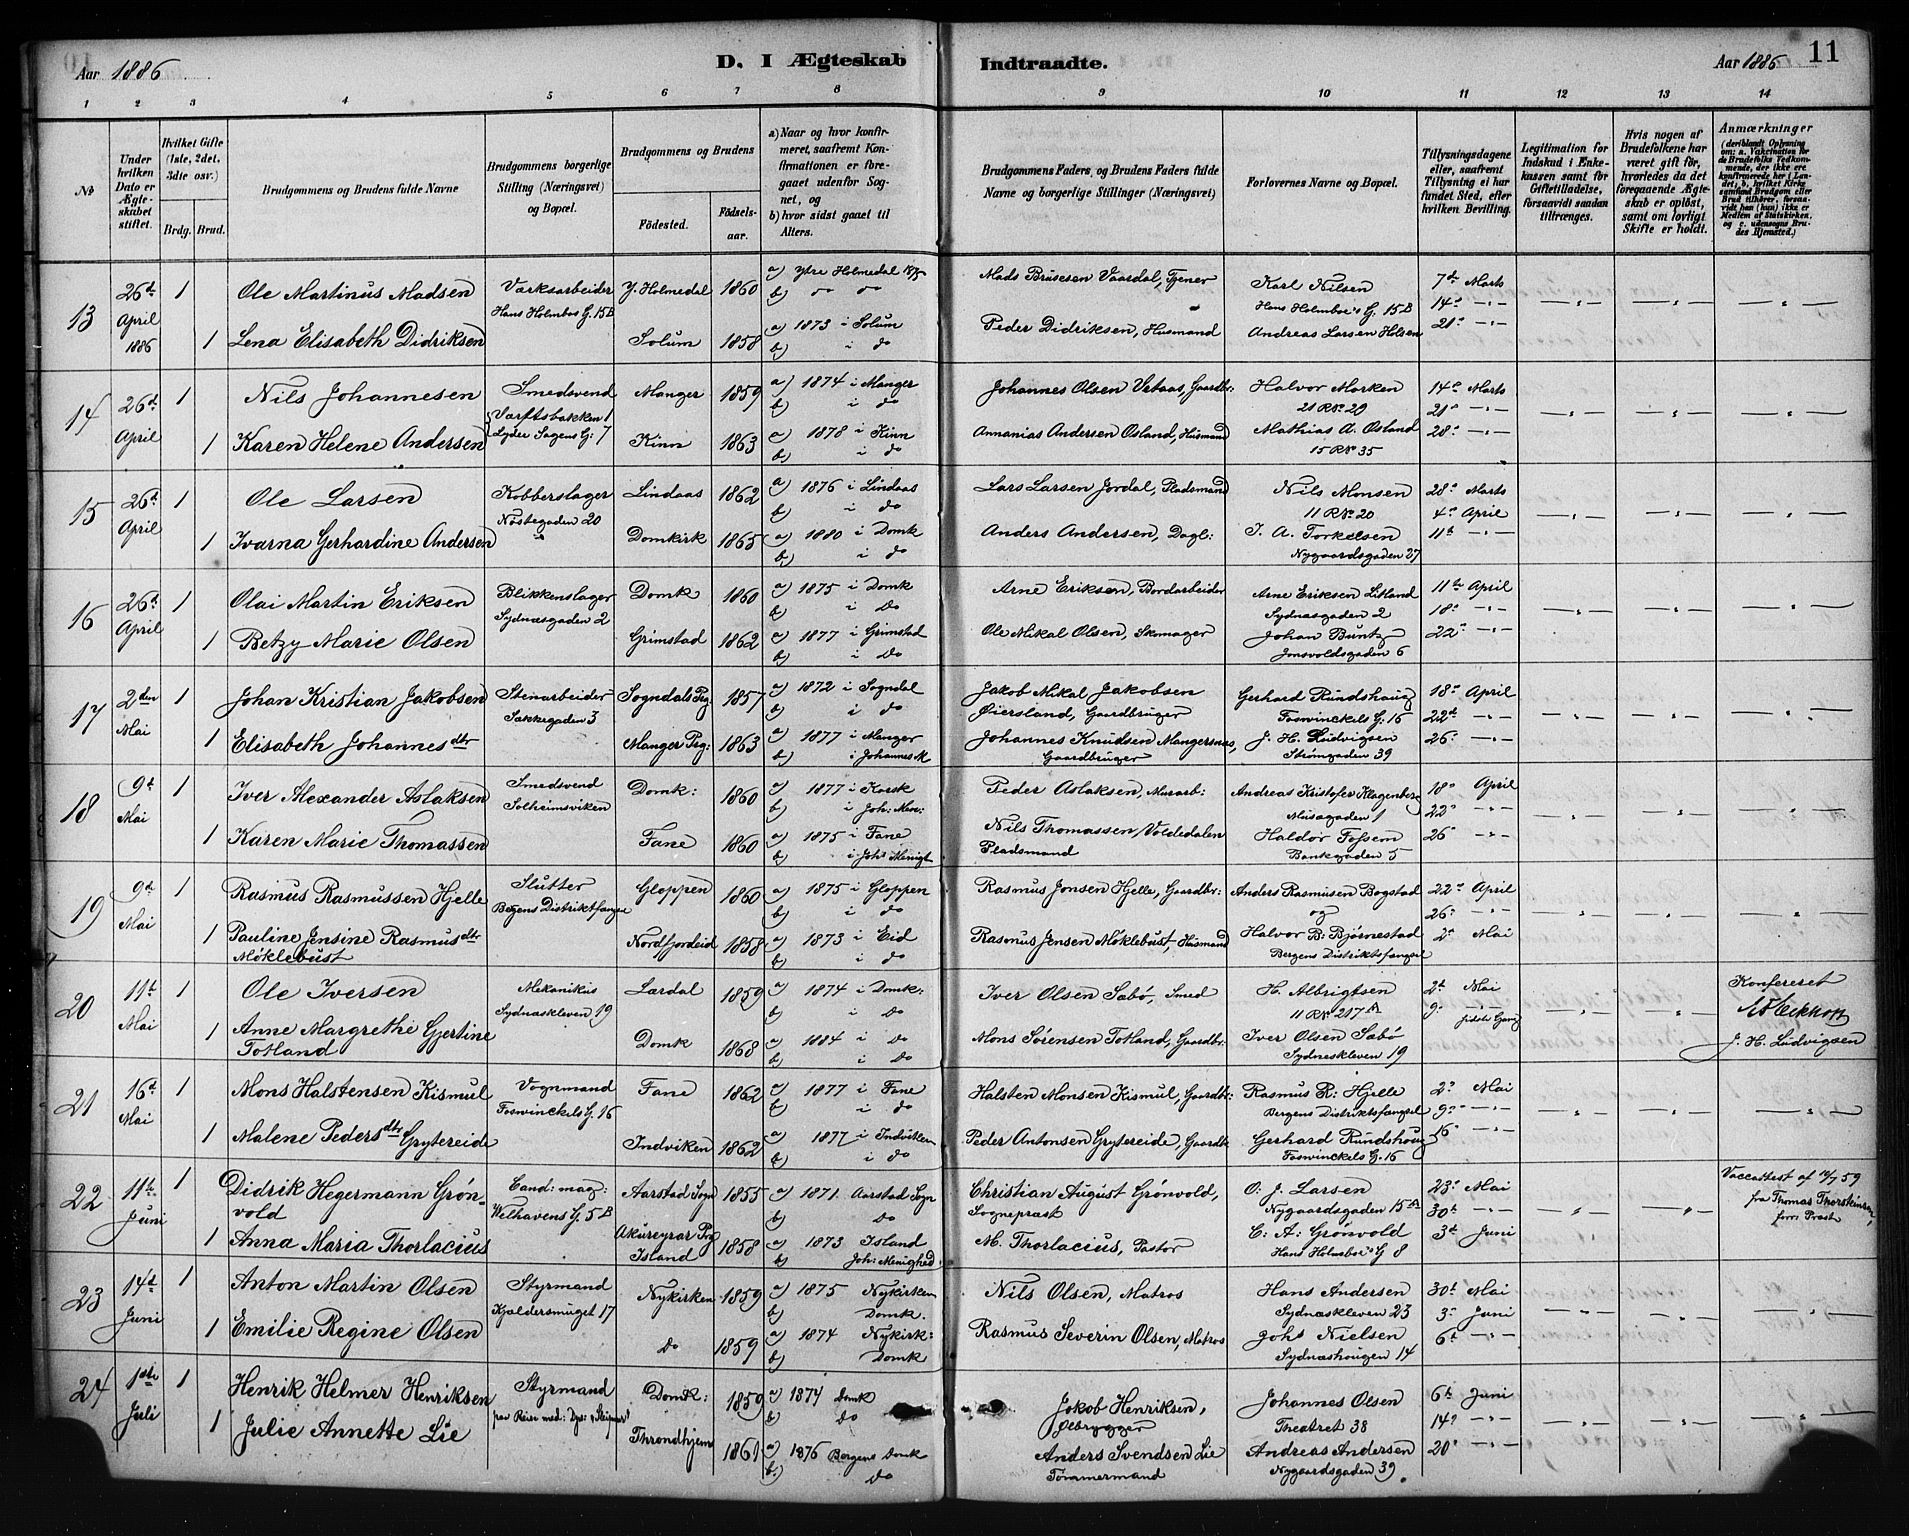 Aar 1886
D. I Ægteskab Indtraadte.
Aar 1886 11
1 2 3 4 5 6 7 8 9 10 11 12 13 14
No
Under hvilken Dato er Ægteskabet stiftet.
Hvilket Gifte (1ste, 2det, 3die osv.)
Brdg. Brud.
Brudgommens og Brudens fulde Navne
Brudgommens borgerlige Stilling (Næringsvei) og Bopæl.
Brudgommens og Brudens
Fødested.
Fødselsaar.
a) Naar og hvor konfirmeret, saafremt Konfirmationen er foregaaet udenfor Sognet, og
b) hvor sidst gaaet til Alters.
Brudgommens Faders, og Brudens Faders fulde Navne og borgerlige Stillinger (Næringsvei)
Forlovernes Navne og Bopæl.
Tillysningsdagene eller, saafremt Tillysning ei har fundet Sted, efter hvilken Bevilling.
Legitimation for Indskud i Enkekassen samt for Giftetilladelse, forsaavidt saadan tiltrænges.
Hvis nogen af Brudefolkene har været gift før, hvorledes da det foregaaende Ægteskab er opløst, samt om lovligt Skifte er holdt.
Anmærkninger (deriblandt Oplysning om: a. Vakcination for de Brudefolks Vedkommende, der ikke ere konfirmerede her i Landet; b. hvilket Kirkesamfund Brudgom eller Brud tilhører, forsaavidt han (hun) ikke er Medlem af Statskirken, og c. udensogns Brudes Hjemsted.)
13 26de April 1886 1 Ole Martinus Madsen Værksarbeider Y. Holmedal 1860 a) Ytre Holmedal Mads Brusesen Vaardal, Tjener Karl Nilsen 7de Marts
Hans Holmboes G. 15B b) do do Hans Holmboe's G. 15B 14de
1 Lena Elisabeth Didriksen Solum 1858 a) 1873 i Solum Peder Didriksen, Husmand Andreas Larsen Holsen 21de
b) i do
14 26de April 1 Nils Johannesen Smedsvend Manger 1859 a) 1874 i Manger Johannes Olsen Vetaas, Gaardbr: Halvor Marken 14de Marts
Værftsbakken 1 b) i do 21 RNo 29 21de
1 Karen Helene Andersen Lyder Sagens G: 7 Kinn 1863 a) 1878 i Kinn Annanias Andersen Osland, Husmand Mathias A. Osland 28de
b) i do 15 RNo 35
15 26de April 1 Ole Larsen Kobberslager Lindaas 1862 a) 1876 i Lindaas Lars Larsen Jordal, Pladsmand Nils Monsen 28de Marts
Nøstegaden 20 b) i do 11 RNo 20 4de April
1 Ivarna Gerhardine Andersen Domkirk 1865 a) 1880 i Domk Anders Andersen, Dagl: J. A. Torkelsen 11te
b) i do Nygaardsgaden 27
16 26de April 1 Olai Martin Eriksen Blikkenslager Domk 1860 a) 1875 i Domk Arne Eriksen, Bordarbeider Arne Eriksen Litland 11te April
Sydnæsgaden 2 b) i Do Sydnæsgaden 2 18de
1 Betzy Marie Olsen Grimstad 1862 a) 1877 i Grimstad Ole Mikal Olsen, Skomager Johan Buntz 22de
b) i Do Jonsvoldsgaden 6
17 2den Mai 1 Johan Kristian Jakobsen Stenarbeider Sogndals Prg. 1857 a) 1872 i Sogndal Jakob Mikal Jakobsen Gerhard Rundshaug 18de April
Sækkegaden 3 b) i do Øiersland, Gaardbruger Foswinckels G. 16 22de
1 Elisabeth Johannesdtr Manger Prg: 1863 a) 1877 i Manger Johannes Knudsen Mangersnæs, J. H. Ludvigsen 26de
b) i Johannes M Gaardbruger Strømgaden 39
18 9de Mai 1 Iver Alexander Aslaksen Smedsvend Domk: 1860 a) 1877 i Korsk Peder Aslaksen, Murarb: Andreas Kristofer Klagenberg 18de April
Solheimsviken b) i Joh: Men: Musægaden 1 22de
1 Karen Marie Thomassen Fane 1860 a) 1875 i Fane Nils Thomassen Voldedalen Haldor Fossem 26de
b) i Johs Menigt Pladsmand Bankgaden 5
19 9de Mai 1 Rasmus Rasmussen Hjelle Slutter Gloppen 1860 a) 1875 i Gloppen Rasmus Jonsen Hjelle, Gaardbr: Anders Rasmusen Bogstad 22de April
Bergens Distriktsfængsel b) i do og 26de
1 Pauline Jensine Rasmusdtr Nordfjordeid 1858 a) 1873 i Eid Rasmus Jensen Møklebust, Husmand Halvor B: Bjørnestad 2de Mai
Møklebust b) i do Bergens Distriktsfængsel
20 11te Mai 1 Ole Iversen Mekanikus Lærdal 1859 a) 1874 i Domk: Iver Olsen Sabø, Smed H. Albrigtsen 2de Mai Konfereret
Sydnæskleven 19 b) i do 11 RNo 217A 9de
1 Anne Margrethe Gjertine Domk 1868 a) 1884 i Do Mons Sørensen Totland, Gaardbr: Iver Olsen Sabø sidste Gang
Totland b) i Do Sydnæskleven 19 J. H. Ludvigsen
21 16de Mai 1 Mons Halstensen Kismul Vognmand Fane 1862 a) 1877 i Fane Halsten Monsen Kismul, Gaardbr: Rasmus R: Hjelle 2de Mai
Foswinckels G. 16 b) i do Bergens Distriktsfængsel 9de
1 Malene Pedersdtr Grytereide Indviken 1862 a) 1877 i Indviken Peder Antonsen Grytereide, Gaardb Gerhard Rundshaug 16de
b) i do Foswinckels G. 16
22 11te Juni 1 Didrik Hegermann Grøn- Cand: mag: Aarstad Sogn 1855 a) 1871 Aarstad Sogn Christian August Grønvold, O. J. Larsen 23de Mai Vaccattest af 14/7 59
vold Welhavens G. 5B b) Do Sogneprest Nygaardsgaden 15A 30te fra Thomas Thorskinsen,
1 Anna Maria Thorlacius Akureyrar Prg Island 1858 a) 1873 Island M. Thorlacius, Pastor C: A: Grønvold 3de Juni forr. Præst
b) Joh: Menighed Hans Holmboe's G 8
23 14de Juni 1 Anton Martin Olsen Styrmand Nykirken 1859 a) 1875 Nykirken Nils Olsen, Matros Hans Andersen 30te Mai
Kjældersmuget 17 b) Domk. Sydnæskleven 23 3de Juni
1 Emilie Regine Olsen Do 1859 a) 1874 Nykirk: Rasmus Severin Olsen, Matros Johs Nielsen 6te
b) Domk Sydnæshougen 14
24 1ste Juli 1 Henrik Helmer Henriksen Styrmand Domk: 1859 a) 1874 Domk Jakob Henriksen, Johannes Olsen 6te Juni
paa Reise med: b) Do Ølbrygger Theatret 38 14de
1 Julie Annette Lie Throndhjem 1861 a) 1876 Bergens Domk Anders Svendsen Lie Andreas Andersen 20de
b) Do Tømmermand Nygaardsgaden 39.